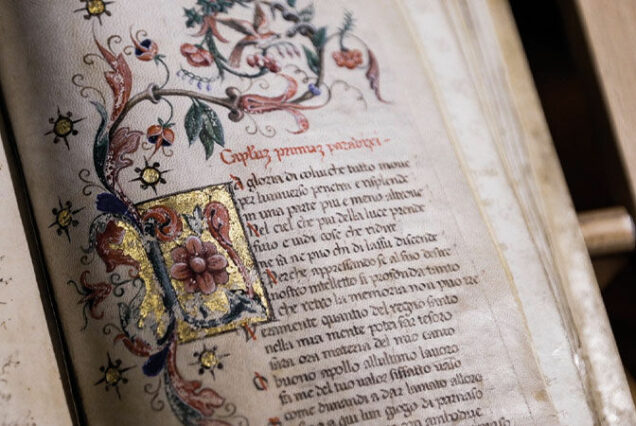 Capluz primuz paradizi
a gloria di colui che tutto moue
per luniuerso penetra e risplende
in una parte piu e meno altroue
Nel ciel che piu della luce prende
fuio e uidi cose che ridire
ne sa ne puo chi di lassu discende
Perche appressando se al suo disire
nostro intelletto si profonda tanto
che retro la memoria non puo ire
Veramente quantio del regno santo
nella mia mente potei far tesoro
sara ora materia del mio canto
O buono apollo allultimo lauoro
fa me del tuo ualor sifatto uaso
come dimandi a dar lamato alloro
a qui lun giogo di parnaso
ambodue